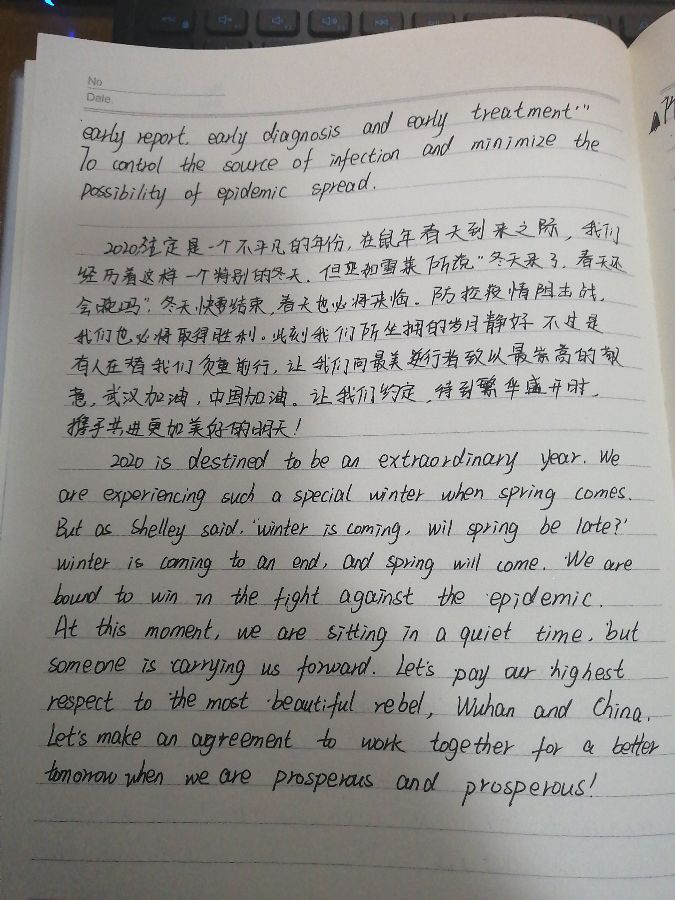 No
Date.
early report. early diagnosis and early treatment"
To control the source of infection and minimize the
possibility of epidemic spread.
2020注定是一个不平凡的年份，在鼠年春天到来之际，我们
经历着这样一个特别的冬天。但正如雪莱所说"冬天来了，春天还
会晚吗"。冬天快要结束，春天也必将来临。防控疫情阻击战，
我们也必将取得胜利。此刻我们所坐拥的岁月静好 不过是
有人在替我们负重前行，让我们向最美逆行者致以最崇高的敬
意，武汉加油，中国加油。让我们约定，待到繁华盛开时，
携手共进更加美好的明天！
2020 is destined to be an extraordinary year. We
are experiencing such a special winter when spring comes.
But as Shelley said. 'winter is coming, wil spring be late?'
winter is coming to an end, and spring will come. We are
bound to win in the fight against the epidemic.
At this moment, we are sitting in a quiet time, but
someone is carrying us forward. Let's pay our highest
respect to the most beautiful rebel, Wuhan and China.
Let's make an agreement to work together for a better
tomorrow when we are prosperous and prosperous!